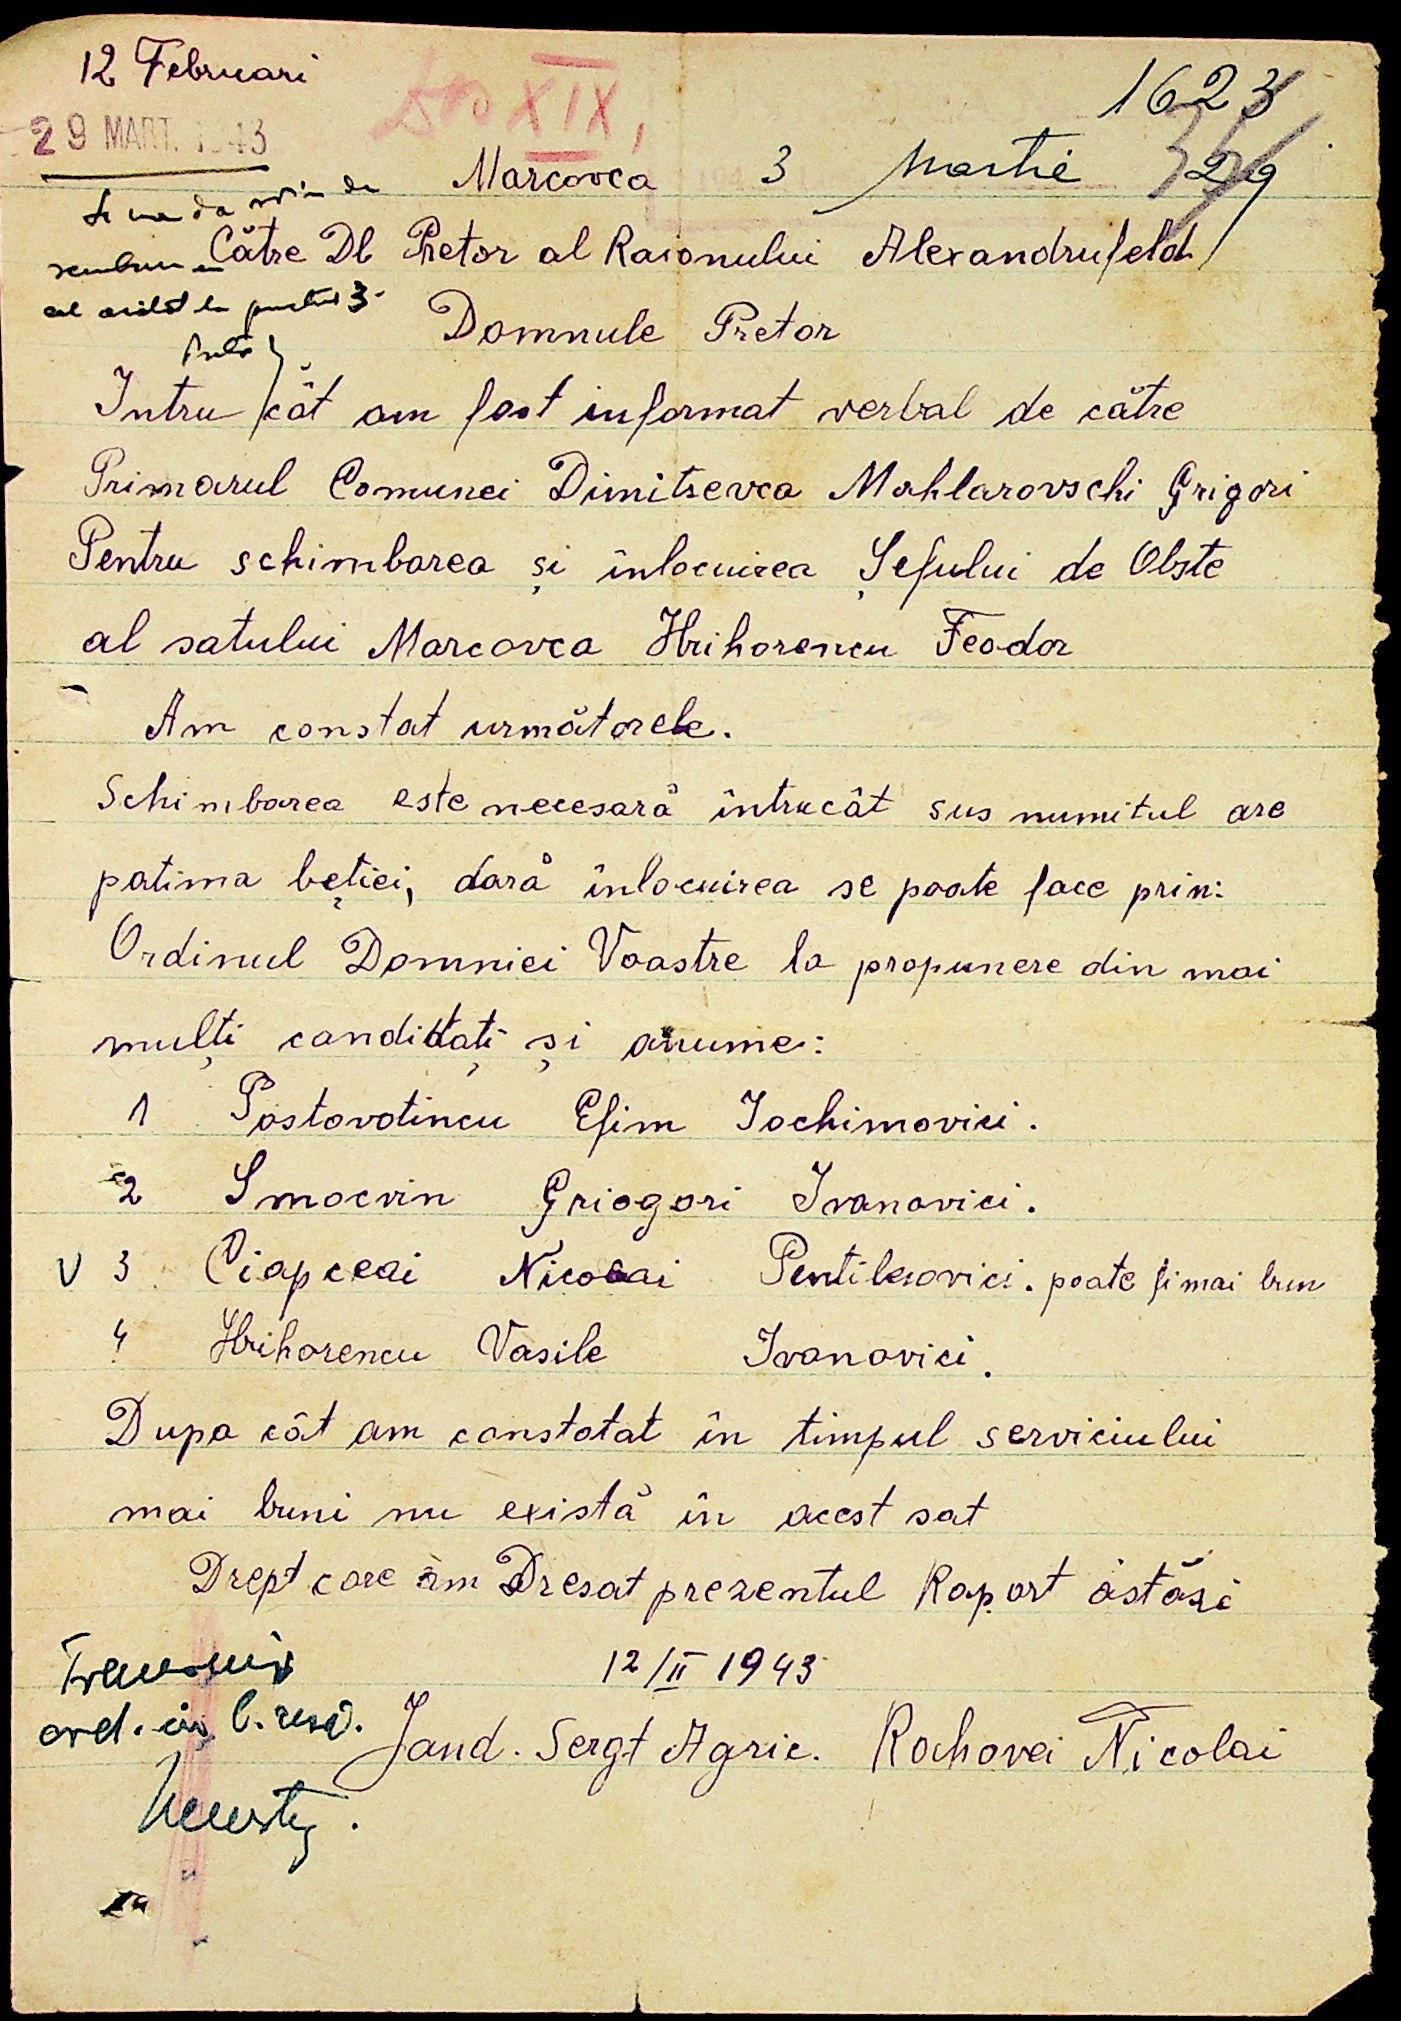 12 Februari
Dos XIX,
1623
29 MART. 1943
Marcovca 3 Martie 29
Se va da ordin de
Către Dl Pretor al Raionului Alexandrufeld
cel arătat la punctul 3.
Domnule Pretor
Intru cât am fost informat verbal de către
Primarul Comunei Dimitrevca Mahlarovschi Grigori
Pentru schimbarea și înlocuirea Șefului de Obste
al satului Marcovca Hrihorencu Feodor
Am constat următorele.
Schimbarea este necesară întrucât sus numitul are
patima beției, dară înlocuirea se poate face prin:
Ordinul Domniei Voastre la propunere din mai
mulți candidați și anume:
1 Postovotincu Efim Iochimovici.
2 Smocvin Griogori Ivanovici.
V 3 Ciapceai Nicolai Pentileiovici. poate fi mai bun
4 Hrihorencu Vasile Ivanovici.
Dupa cât am constotat în timpul serviciului
mai buni nu există în acest sat
Drept care am Dresat prezentul Raport astăzi
12/II 1943
ord.
Jand. Sergt Agric. Rochovei Nicolai